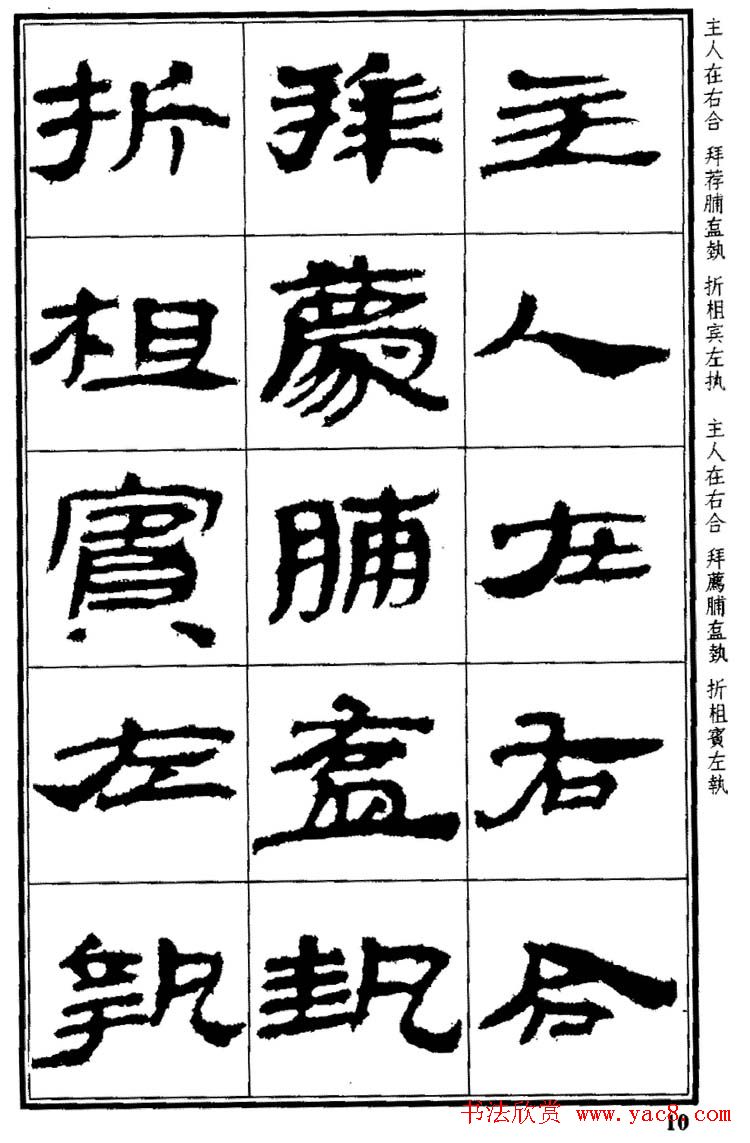 主人在右合 拜荐脯盍执 折柤宾左执 主人在右合 拜薦脯盍執 折柤賓左執
主人在右合
拜薦脯盍執
折柤賓左執
书法欣赏 www.yac8.com
10